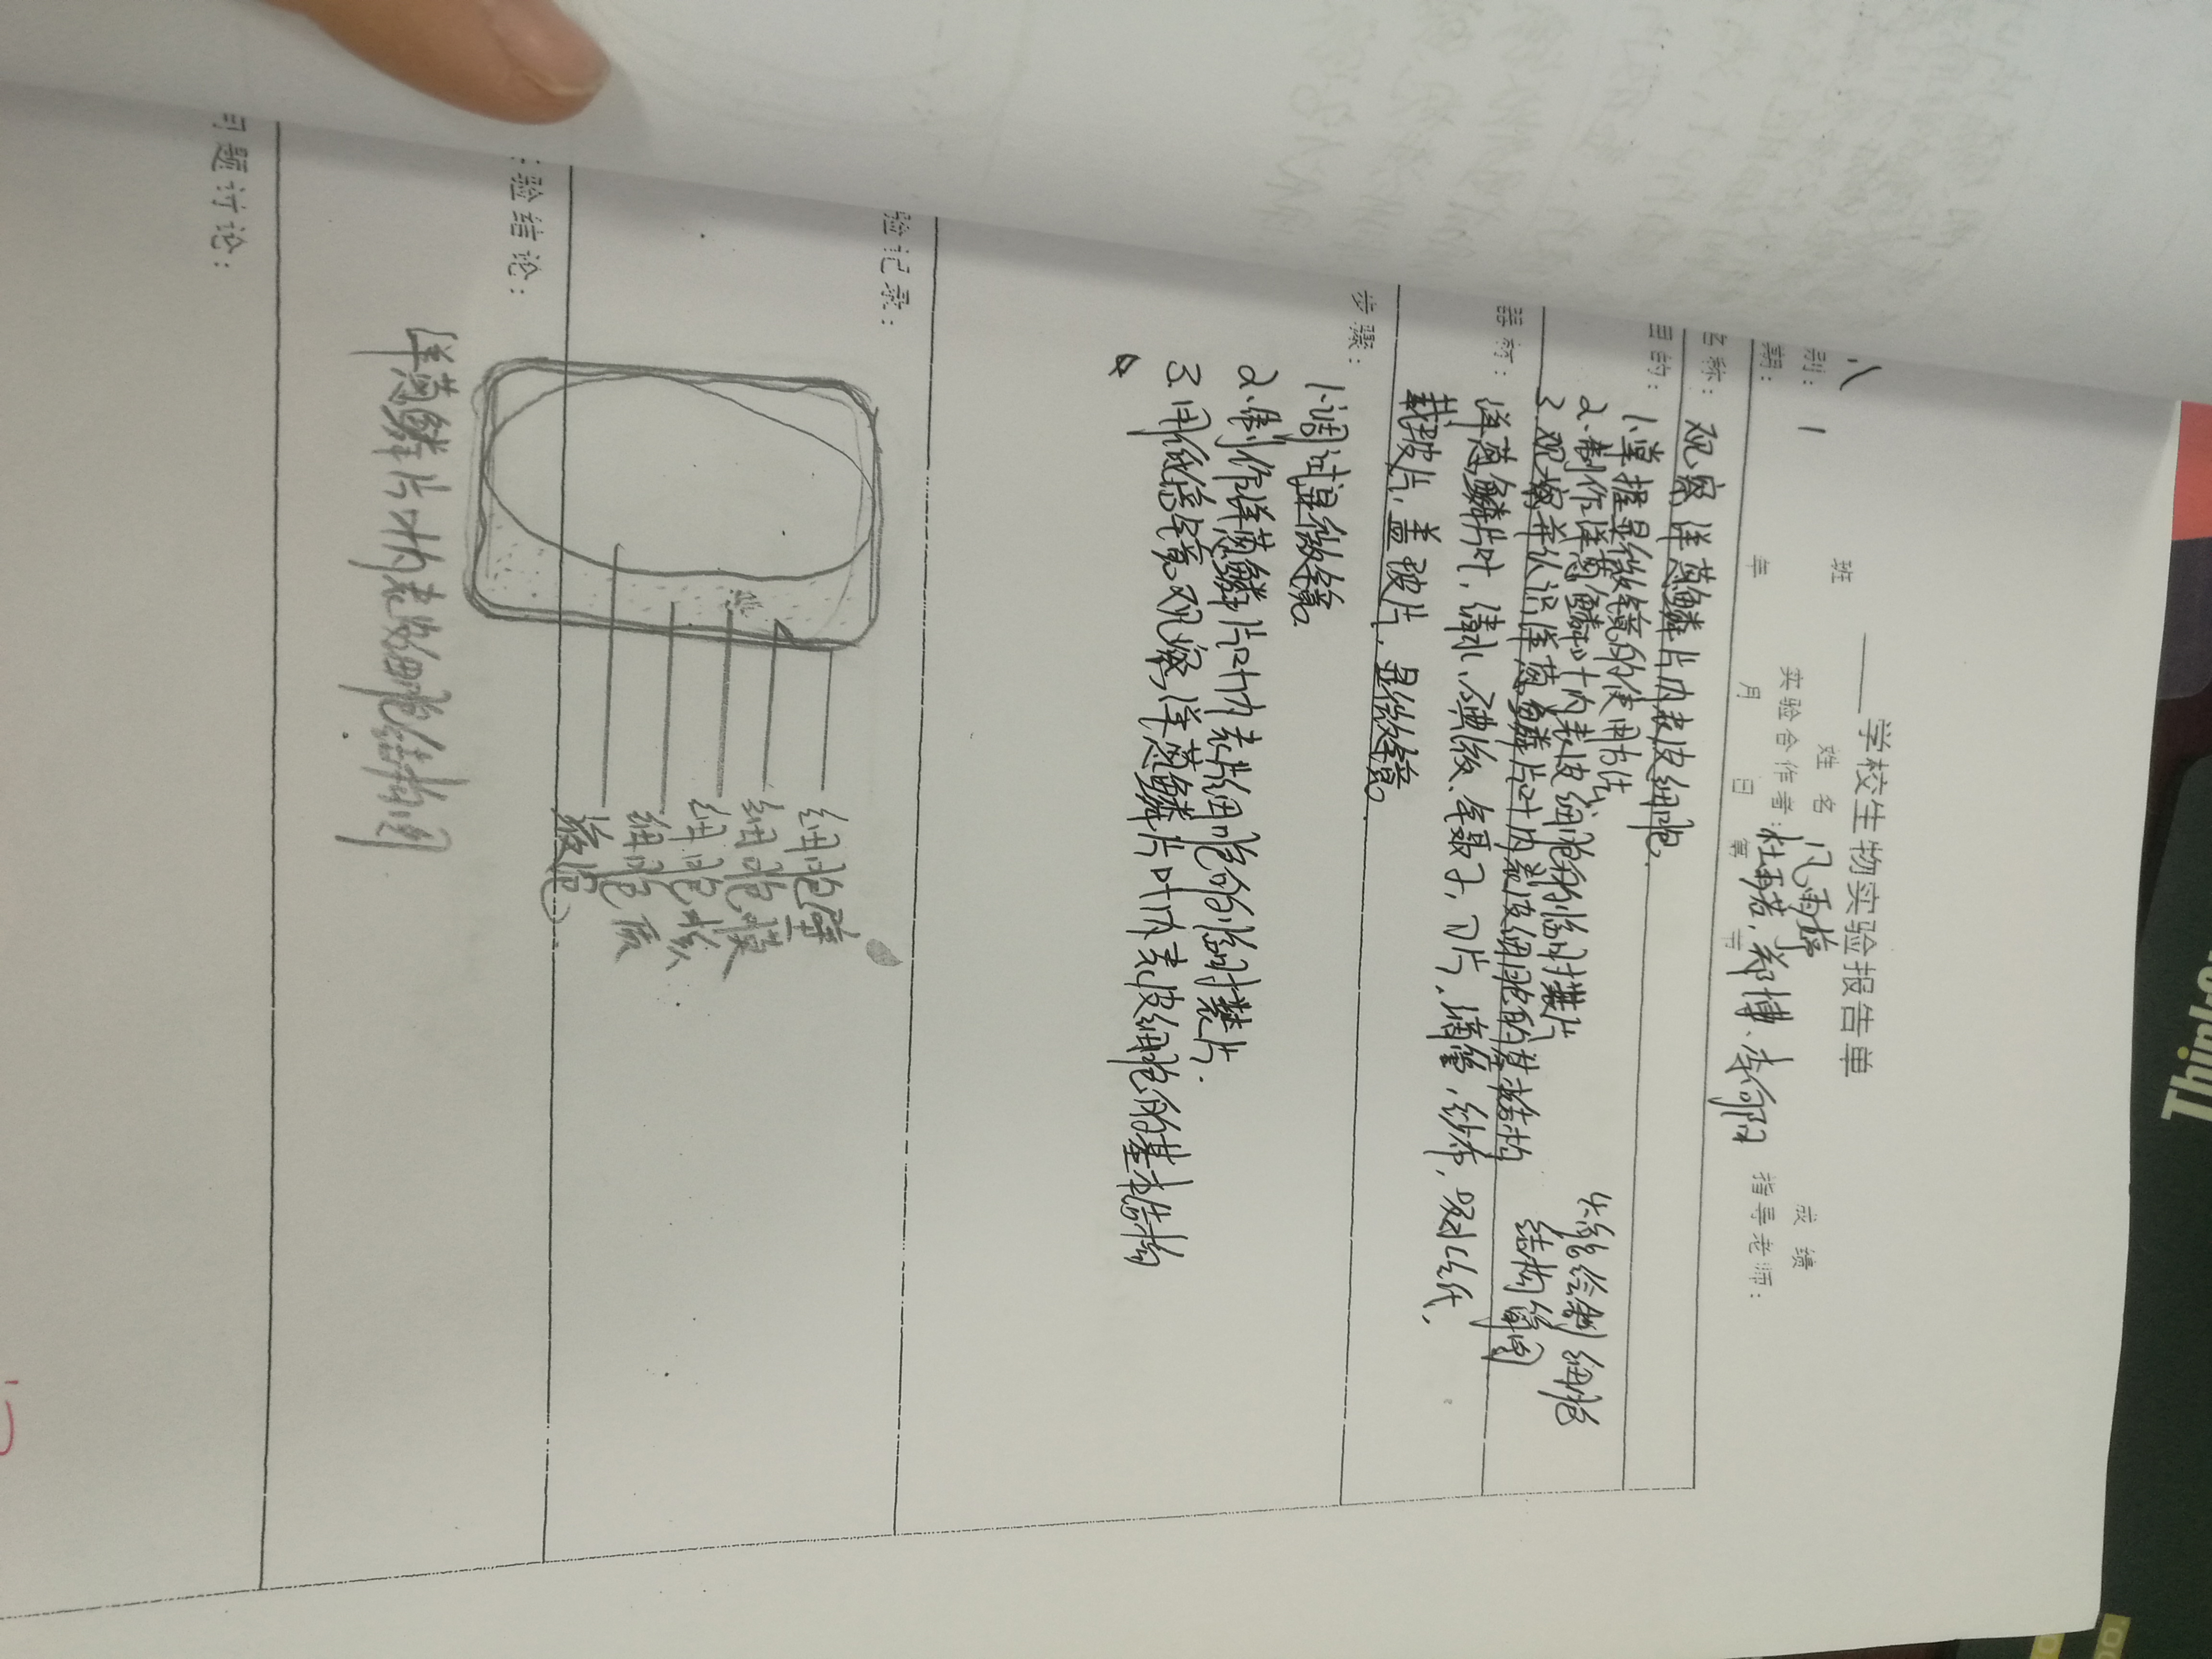 学校生物实验报告单
八
别: 1 班 姓名 成绩
实验合作者: 杜雨若、郑博、李 指导老师:
期: 年 月 日 第 节
名称: 观察洋葱鳞片内表皮细胞.
目的: 1.掌握显微镜的使用方法
2.制作洋葱鳞叶内表皮细胞的临时装片
3.观察并认识洋葱鳞片叶内表皮细胞的基本结构
4.能绘制细胞
结构简图
器材: 洋葱鳞片叶, 清水、碘液、镊子, 刀片、滴管, 纱布, 吸水纸,
载玻片, 盖玻片, 显微镜。
步骤:
1.调试显微镜。
2.制作洋葱鳞片叶内表片细胞的临时装片.
3.用低倍镜观察洋葱鳞片叶内表皮细胞的基本结构
验记录:
细胞壁
细胞膜
细胞核
细胞质
液泡
验结论:
洋葱鳞片内表的细胞结构
问题讨论:
Think